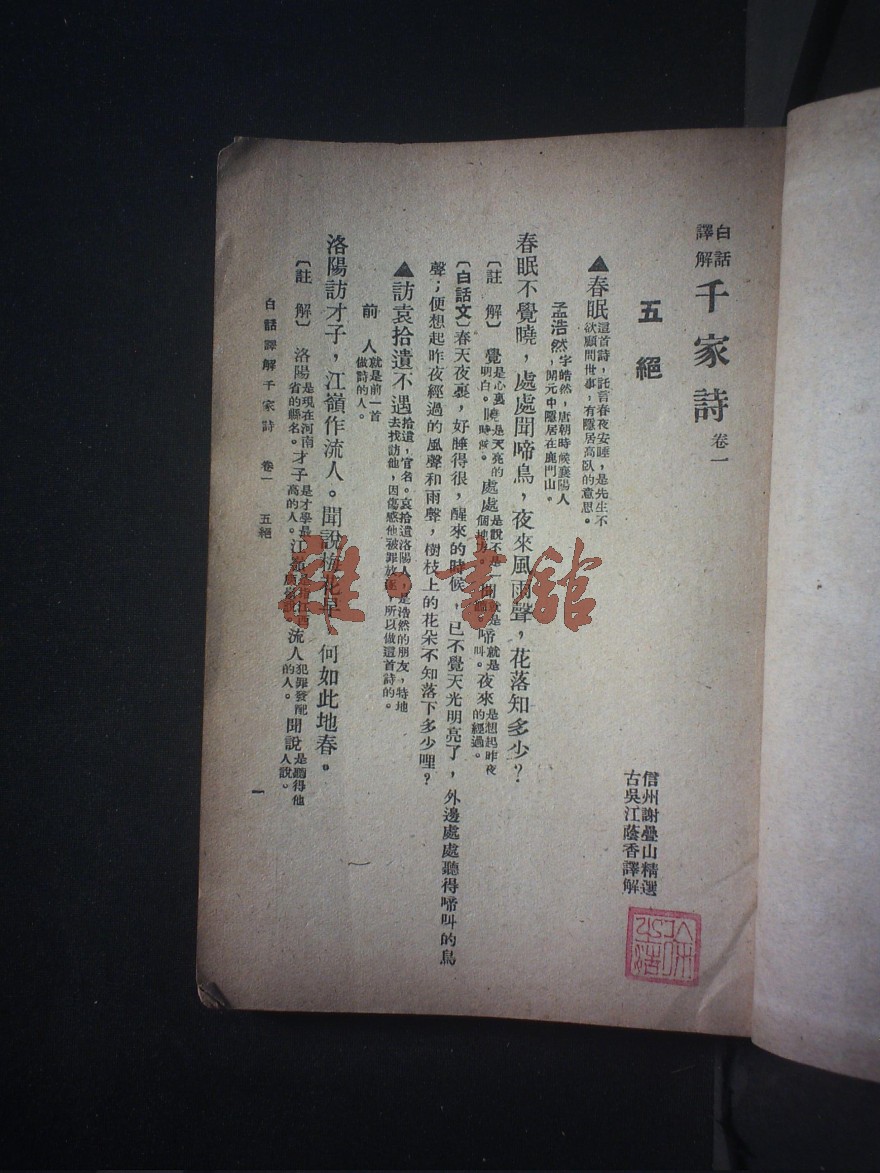 白話譯解千家詩 卷一
信州謝疊山精選
古吳江蔭香譯解
五絕
▲春眠 這首詩，託言春夜安睡，是先生不欲顧問世事，有隱居高臥的意思。
孟浩然 字皓然，唐朝時候襄陽人，開元中隱居在鹿門山。
春眠不覺曉，處處聞啼鳥，夜來風雨聲，花落知多少？
〔註 解〕覺 是心裏明白。曉 是天亮的時候。處處 是說不是一個地方。聞 就是聽。啼 就是叫。夜來 是想起昨夜的經過。
〔白話文〕春天夜裏，好睡得很，醒來的時候，已不覺天光明亮了，外邊處處聽得啼叫的鳥
聲；便想起昨夜經過的風聲和雨聲，樹枝上的花朵不知落下多少哩？
▲訪袁拾遺不遇 拾遺，官名。袁拾遺洛陽人，是浩然的朋友，特地去找訪他，因傷感他被罪放逐，所以做這首詩的。
前 人 就是前一首做詩的人。
洛陽訪才子，江嶺作流人。聞說梅花早 何如此地春。
〔註 解〕洛陽 是現在河南省的縣名。才子 是才學最高的人。江嶺 流人 犯罪發配的人。聞說 是聽得他人說。
白話譯解千家詩 卷一 五絕
一
雜 書館